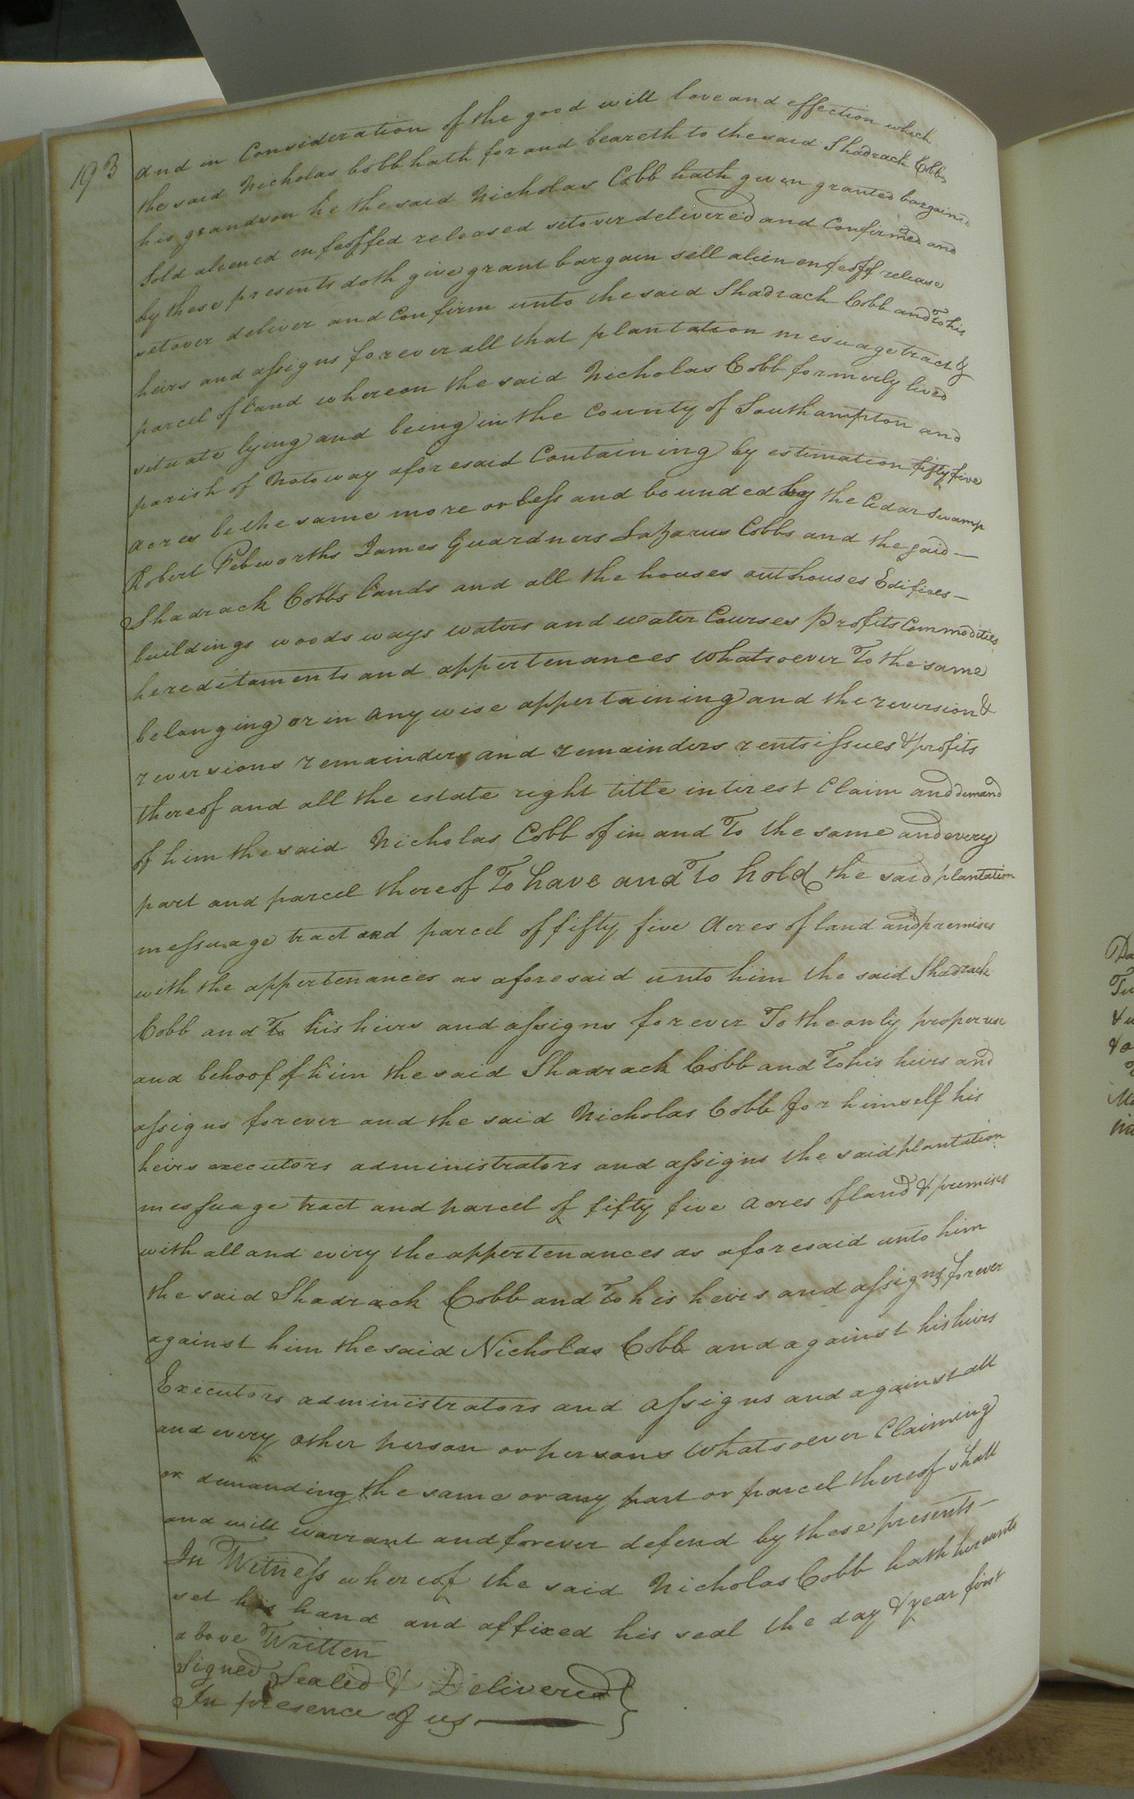 193
and in Consideration of the good will love and effection which
the said Nicholas Cobb hath for and beareth to the said Shadrack Cobb
his grandson he the said Nicholas Cobb hath given granted bargained
Sold aliened enfeoffed released setover delivered and Confirmed and
by these presents doth give grant bargain sell alien enfeoff release
setover deliver and Confirm unto the said Shadrack Cobb and To his
heirs and assigns forever all that plantation mesuage tract &
parcel of Land whereon the said Nicholas Cobb formerly lived
situate lying and being in the County of Southampton and
parish of Notoway aforesaid Containing by estimation fifty five
Acres be the same more or less and bounded by the Cedar Swamp
Robert Pebworths James Guardners Lazarus Cobbs and the said —
Shadrack Cobbs Lands and all the houses outhouses Edifices —
buildings woods ways waters and water Courses Profits Commodities
hereditaments and appertenances whatsoever To the same
belonging or in any wise appertaining and the reversion &
reversions remainders and remainders rents issues & profits
thereof and all the estate right title interest Claim and demand
of him the said Nicholas Cobb of in and To the same and every
part and parcel thereof To have and To hold the said plantation
messuage tract and parcel of fifty five Acres of land and premises
with the appertenances as aforesaid unto him the said Shadrack
Cobb and To his heirs and assigns forever To the only proper use
and behoof of him the said Shadrack Cobb and To his heirs and
assigns forever and the said Nicholas Cobb for himself his
heirs executors administrators and assigns the said plantation
messuage tract and parcel of fifty five Acres of land & premises
with all and every the appertenances as aforesaid unto him
the said Shadrack Cobb and To his heirs and assigns forever
against him the said Nicholas Cobb and against his heirs
Executors administrators and assigns and against all
and every other person or persons whatsoever Claiming
or demanding the same or any part or parcel thereof shall
and will warrant and forever defend by these presents —
In Witness whereof the said Nicholas Cobb hath hereunto
set his hand and affixed his seal the day & year first
above Written
Signed Sealed & Delivered }
In presence of us —